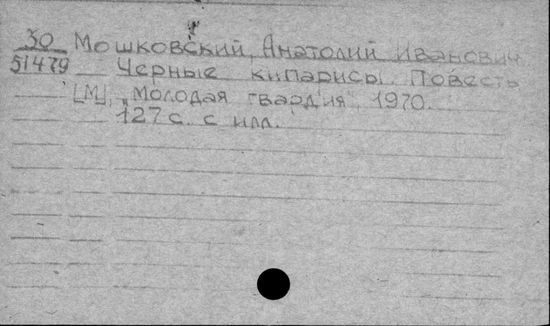 30 Мошковский, Анатолий Иванович
51479 Черные кипарисы. Повесть
[М], "Молодая гвардия", 1970.
127 с. с илл.